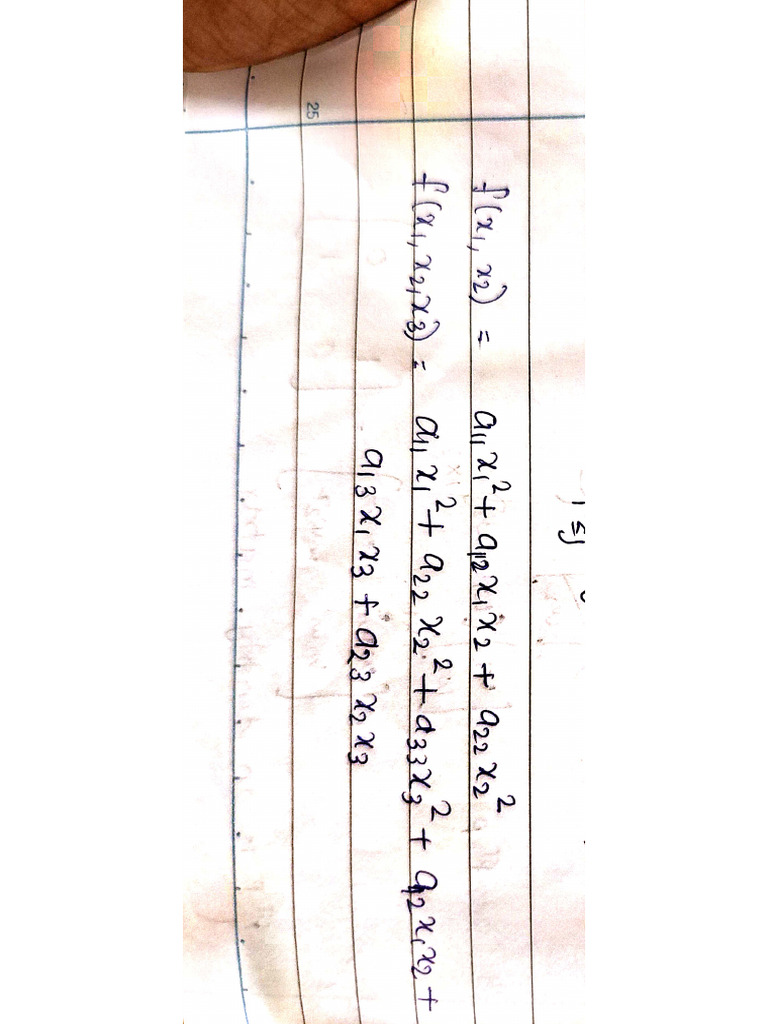 i ≤ j
f(x₁, x₂) = a₁₁x₁² + a₁₂x₁x₂ + a₂₂x₂²
f(x₁, x₂, x₃) = a₁₁x₁² + a₂₂x₂² + a₃₃x₃² + a₁₂x₁x₂ +
a₁₃x₁x₃ + a₂₃x₂x₃
25